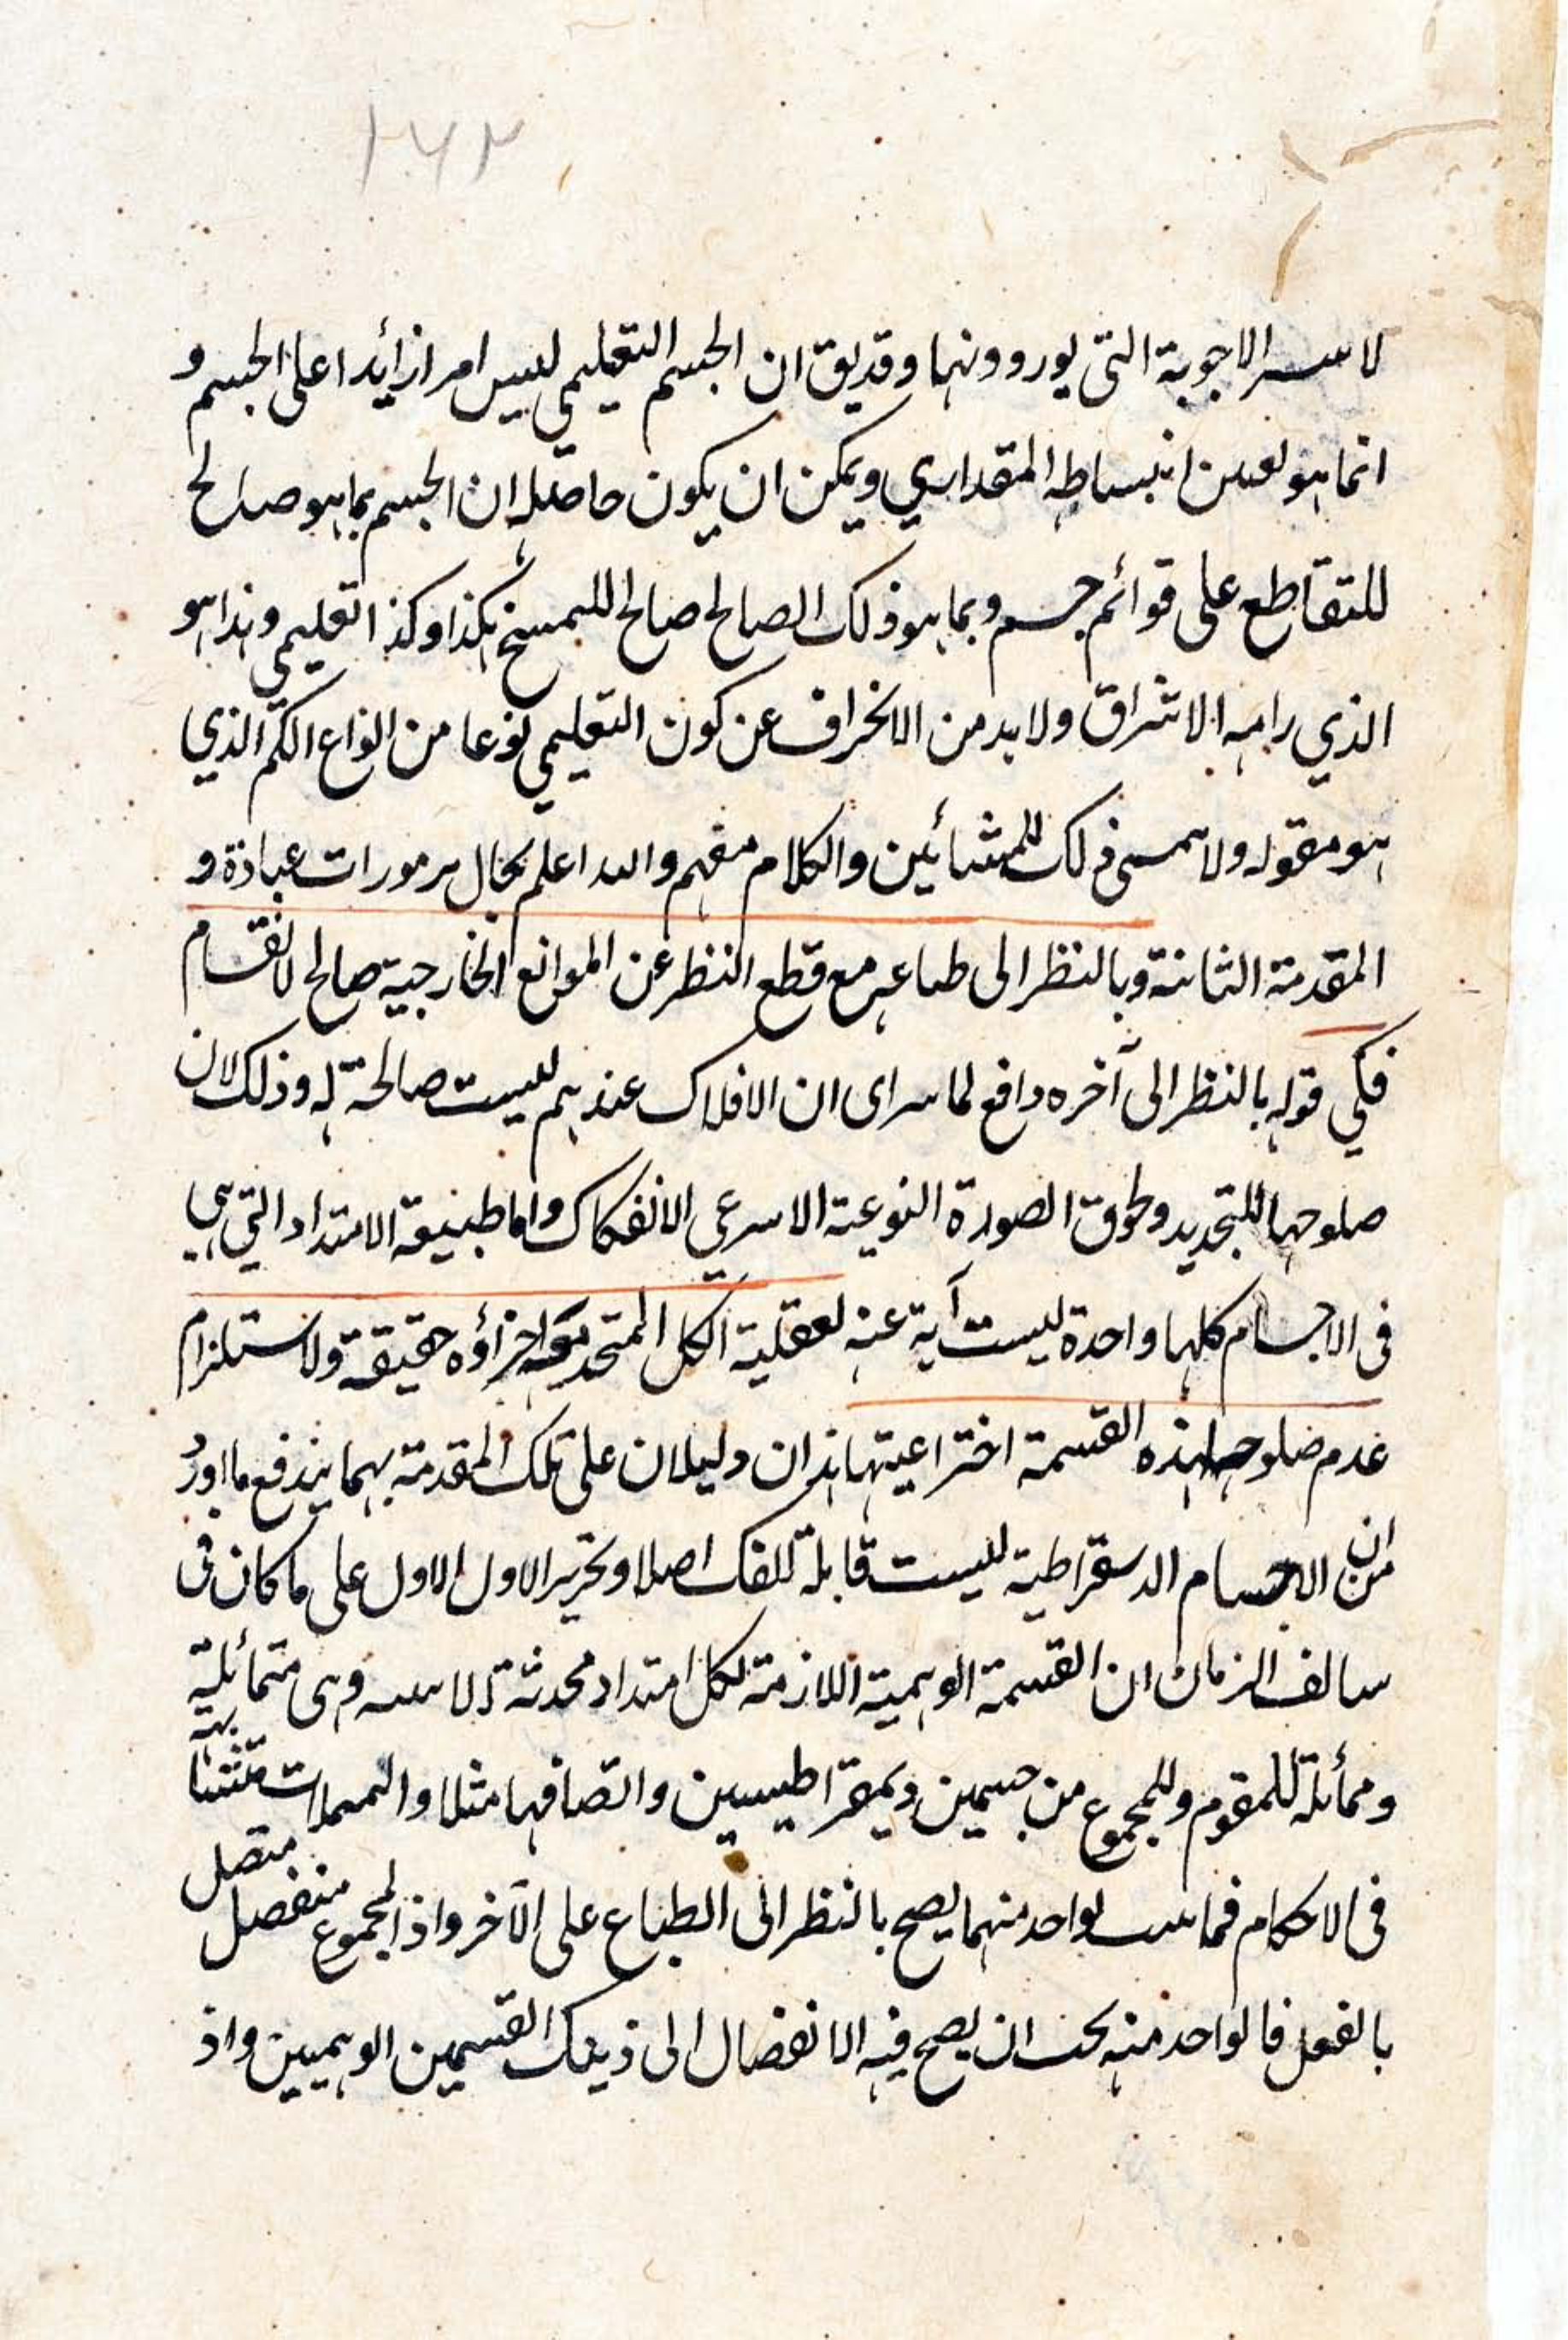 ۲۶۲
الاجوبة التى يوردونها وقد يق ان الجسم التعليمي ليس امرا زائدا على الجسم و
انما هو تعين انبساطه المقداري ويمكن ان يكون حاصله ان الجسم بما هو صالح
للتقاطع على قوائم جسم وبما هو ذلك الصالح صالح هكذا وكذا تعليمي وهذا هو
الذي رامه الاشراق ولا بد من الانحراف عن كون التعليمي نوعا من انواع الكم الذي
هو مقوله ولا ذلك للمشائين والكلام مفهم والله اعلم بحال مرموزات عباده و
المقدمة الثانية وبالنظر الى طباعه مع قطع النظر عن الموانع الخارجية صالح لانقسام
فكي قوله بالنظر الى آخره دافع لما يراى ان الافلاك عندهم ليست صالحة له وذلك لان
صلوحها للتحديد ولحوق الصورة النوعية الانفكاك واما طبيعة الامتداد التي هي
فى الاجسام كلها واحدة ليست آبية عنه لعقلية الكل المتحد مع اجزاؤه حقيقة ولاستلزام
عدم صلوحها لهذه القسمة اختراعيتها هذان دليلان على تلك المقدمة بهما يندفع ما اورد
من ان الاجسام الدمقراطية ليست قابلة للفك اصلا وتحرير الاول الاول على ما كان فى
سالف الزمان ان القسمة الوهمية اللازمة لكل امتداد محدثة وهى متمائلة
ومماثلة للمقوم وللمجموع من جسمين ديمقراطيسين واتصافها مثلا و متشابهة
فى الاحكام فما لواحد منهما يصح بالنظر الى الطباع على الآخر واذ المجموع منفصل متصل
بالفعل فالواحد منه ان يصح فيه الانفصال الى ذينك القسمين الوهميين واذ